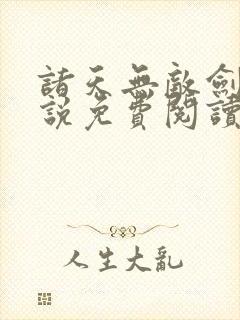 諸天無敵劍
說免費閱讀
人生大亂